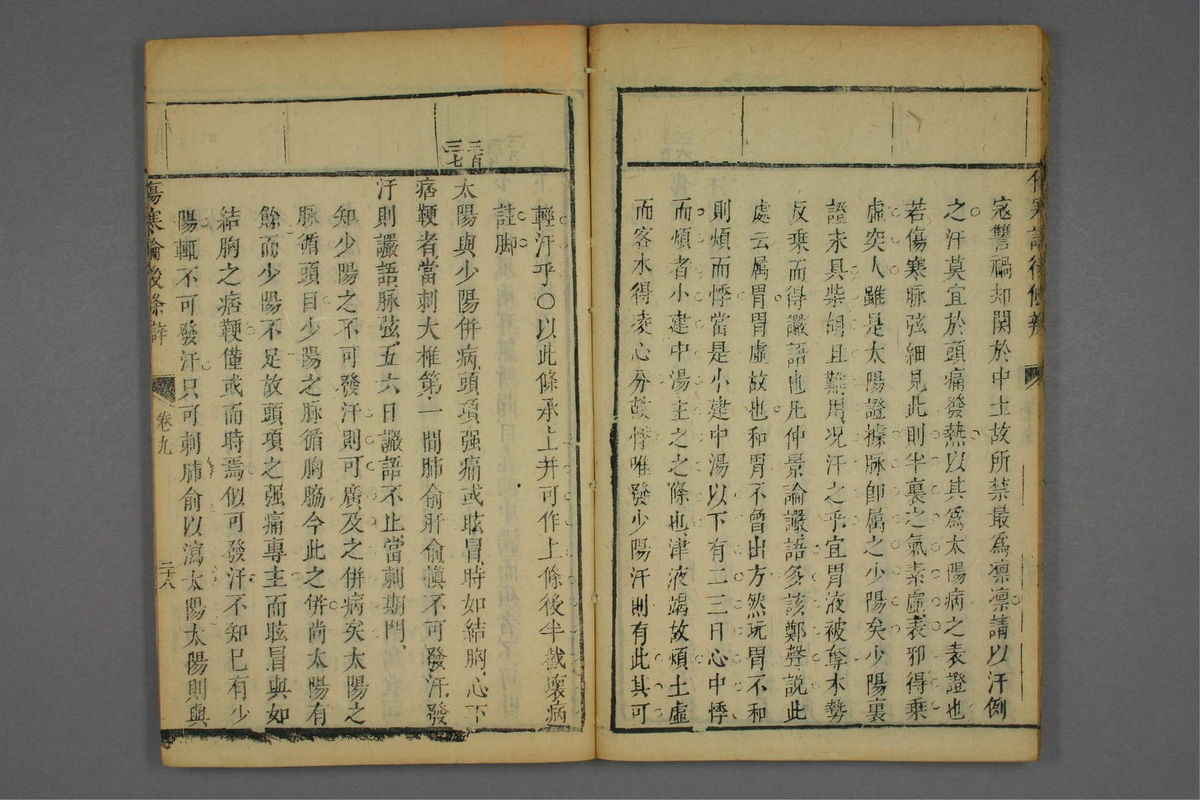 寇讐禍却関於中土故所禁最為凛凛請以汗例
之汗莫宜於頭痛發熱以其為太陽病之表證也
若傷寒脉弦細見此則半裏之氣素虛表邪得乗
虛突人雖是太陽證據脉卽属之少陽矣少陽裏
證未具柴胡且難用况汗之乎宜胃液被奪木勢
反乗而得讝語也凡仲景論讝語多該鄭聲説此
處云属胃胃虛故也和胃不曾出方然玩胃不和
則煩而悸當是小建中湯以下有二三日心中悸
而煩者小建中湯主之之條也津液竭故煩土虛
而客水得凌心分故悸唯發少陽汗則有此其可
輕汗乎〇以此條承上并可作上條後半截壞病
註脚
三百三七
太陽與少陽併病頭項强痛或眩冒時如結胸心下
痞鞕者當刺大椎第一間肺俞肝俞慎不可發汗發
汗則讝語脉弦五六日讝語不止當刺期門
知少陽之不可發汗則可廣及之併病矣太陽之
脉循頭目少陽之脉循胸脇今此之併尚太陽有
餘而少陽不足故頭項之强痛專主而眩冒與如
結胸之痞鞕僅或而時焉似可發汗不知已有少
陽輒不可發汗只可刺肺俞以瀉太陽太陽則與
傷寒論後條辯
卷九
二十八